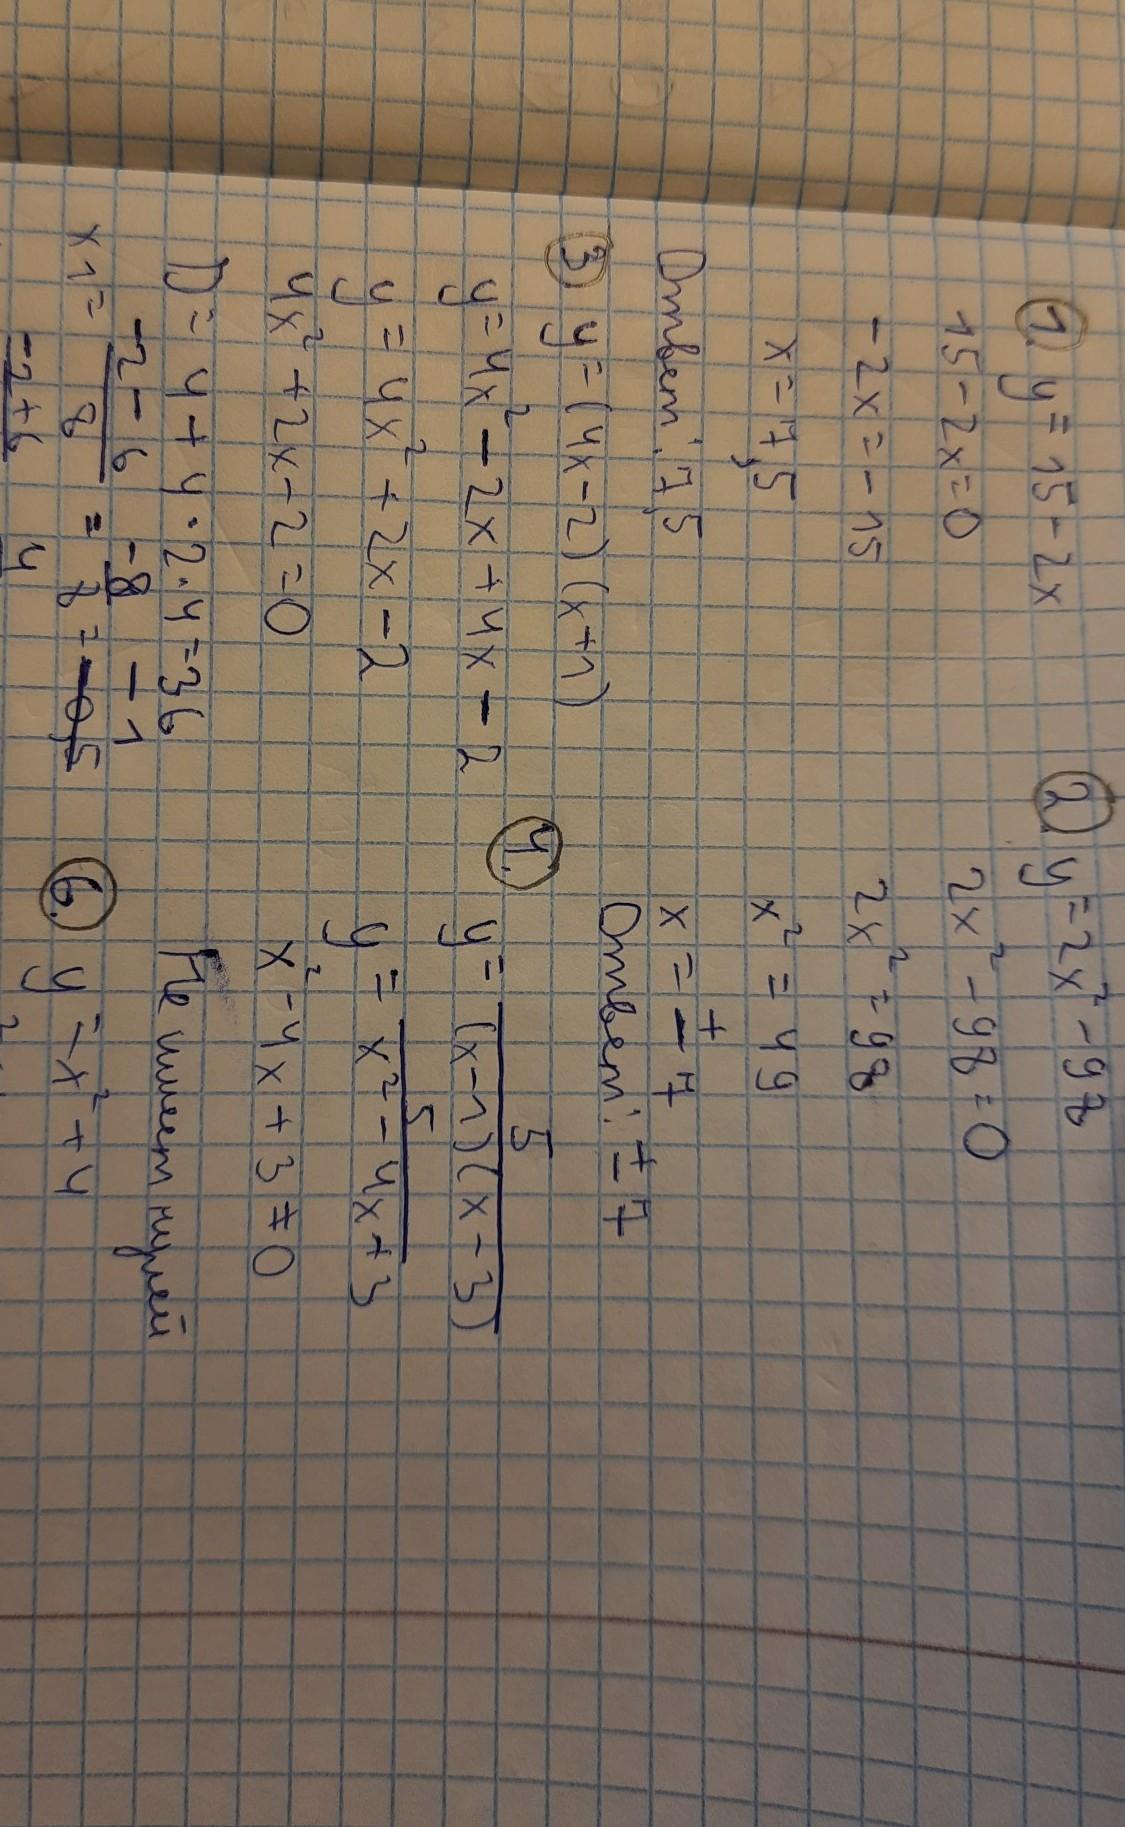 1. y = 15 - 2x
15 - 2x = 0
-2x = -15
x = 7,5
Ответ: 7,5
2. y = 2x² - 98
2x² - 98 = 0
2x² = 98
x² = 49
x = ± 7
Ответ: ± 7
3 y = (4x - 2)(x + 1)
y = 4x² - 2x + 4x - 2
y = 4x² + 2x - 2
4x² + 2x - 2 = 0
D = 4 + 4 · 2 · 4 = 36
x1 = (-2 - 6)/8 = -8/8 = -1
-2+6 4
4. y = 5/((x - 1)(x - 3))
y = 5/(x² - 4x + 3)
x² - 4x + 3 ≠ 0
Не имеет нулей
6. y = -x² + 4